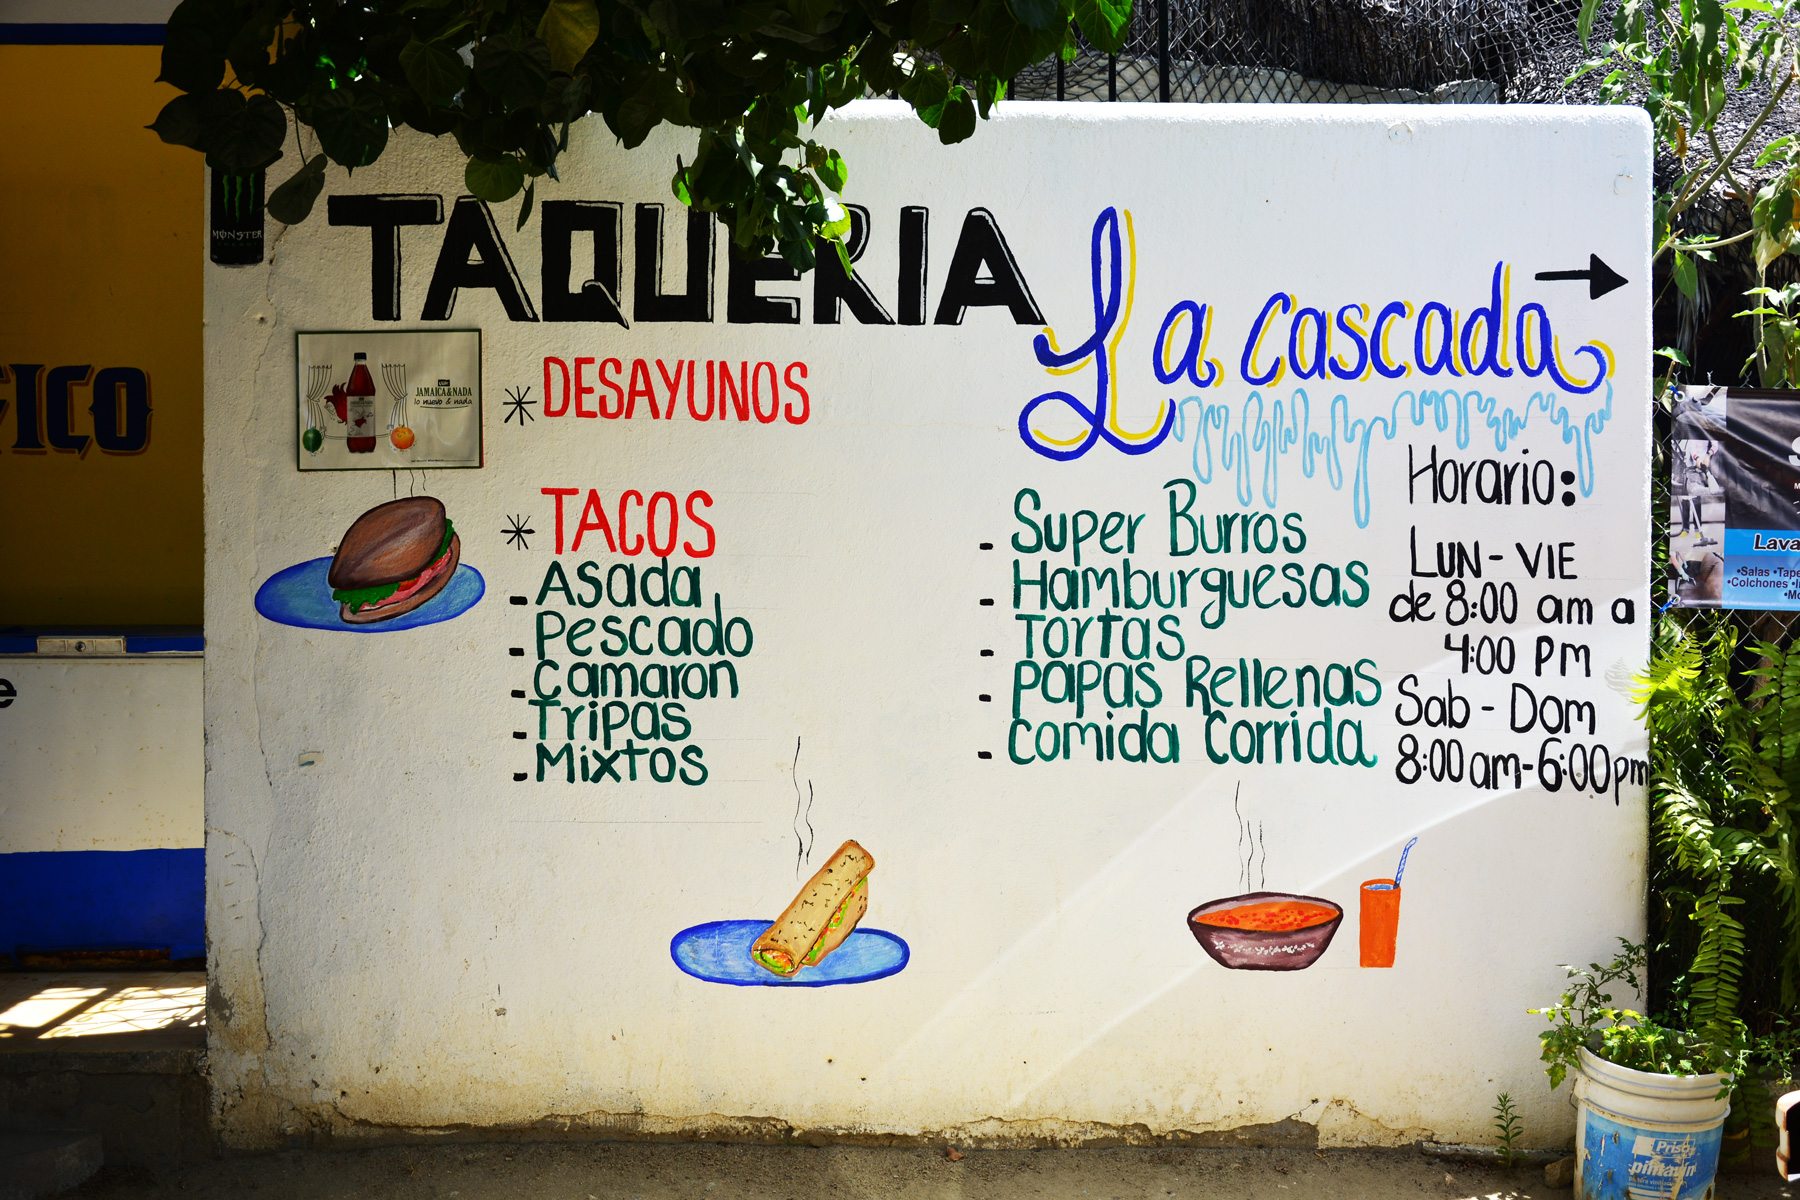 TAQUERIA
La cascada
MONSTER
ENERGY
JAMAICA&NADA
lo nuevo & nada
* DESAYUNOS
* TACOS
- Asada
- Pescado
- Camaron
- Tripas
- Mixtos
- Super Burros
- Hamburguesas
- Tortas
- Papas Rellenas
- Comida Corrida
Horario:
LUN - VIE
de 8:00 am a
4:00 Pm
Sab - Dom
8:00 am - 6:00 pm
FICO
e
Lava
•Salas •Tape
•Colchones •I
•Mo
Prisa
pintasin